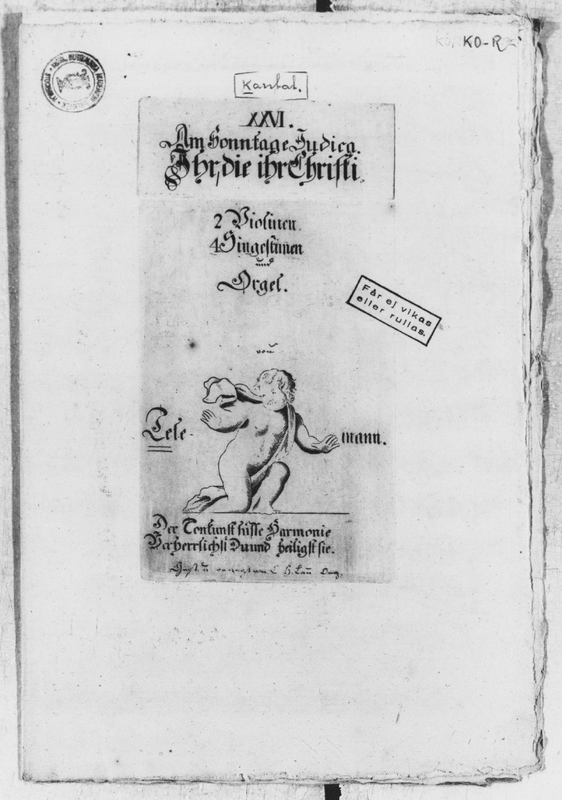 KO-R
Kantat.
XXVI.
Am Sonntage Judica.
Ihr, die ihr Christi
2 Violinen.
4 Singestimen
und
Orgel.
Får ej vikas
eller rullas.
von
Tele-
mann.
Der Tonkunst süsse Harmonie
Verherrlichst Du und heiligst sie.